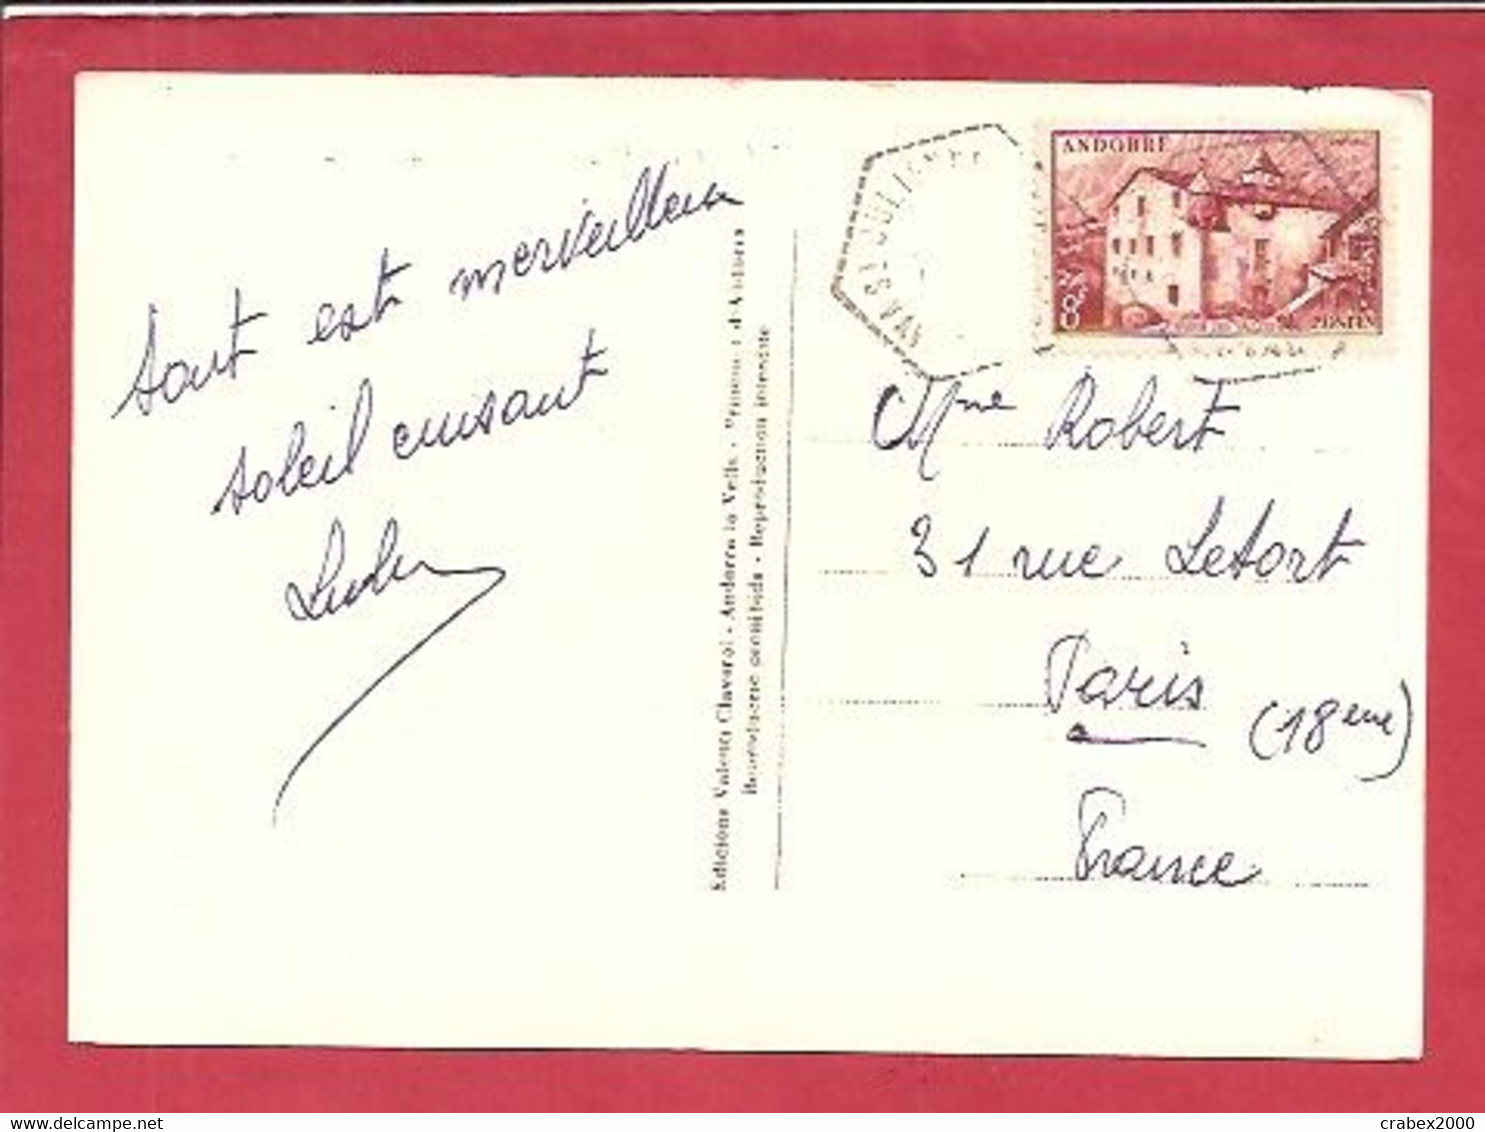 tout est merveilleux
soleil cuisant
Lulu
Edicions Valenti Claverol - Andorra la Vella - Principat d'Andorra
Reproduccio prohibida - Reproduction interdite
ANDORRE
8F
POSTES
Mme Robert
31 rue Letort
Paris
(18eme)
France
delcampe.net
crabex2000